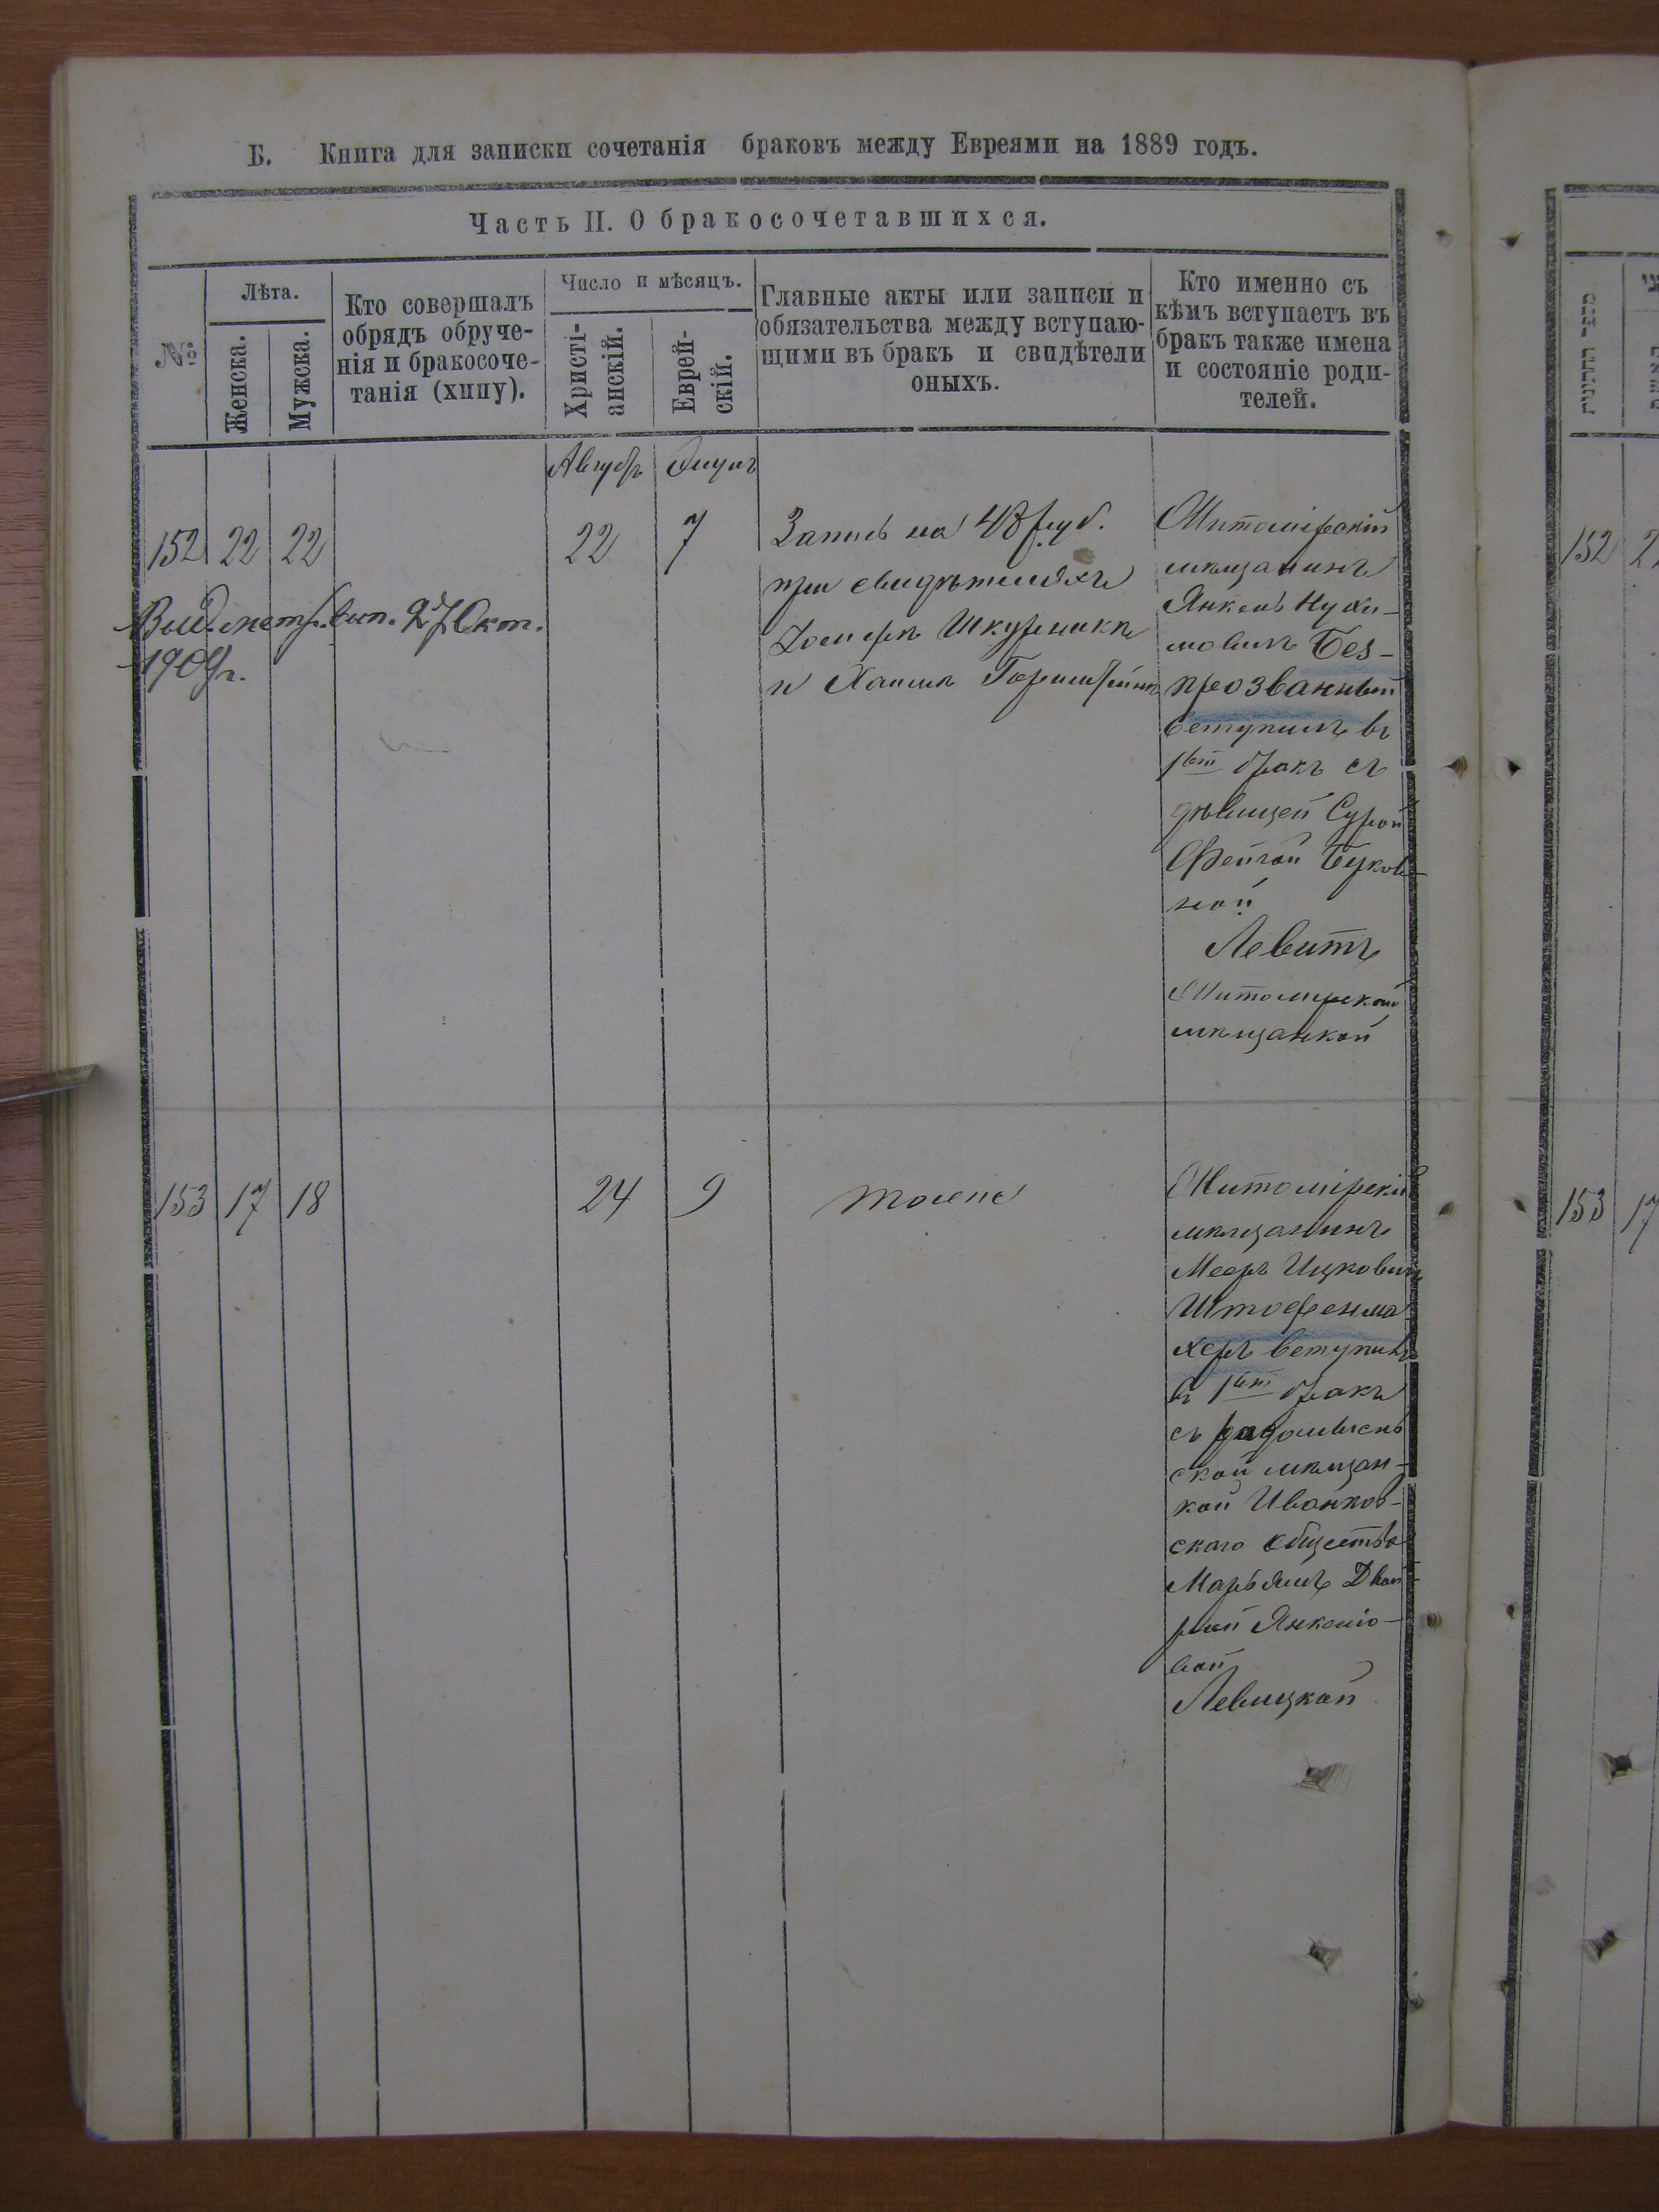 Б. Книга для записки сочетанія браковъ между Евреями на 1889 годъ.
Часть II. О бракосочетавшихся.
№
Лѣта.
Женска.
Мужска.
Кто совершалъ
обрядъ обруче-
нія и бракосоче-
танія (хипу).
Число и мѣсяцъ.
Христі-
анскій.
Еврей-
скій.
Главные акты или записи и
обязательства между вступаю-
щими въ бракъ и свидѣтели
оныхъ.
Кто именно съ
кѣмъ вступаетъ въ
бракъ также имена
и состояніе роди-
телей.
152 22 22
22 7
Запись на 48 руб.
при свидѣтеляхъ
Шкурника
и
Выд. метр. вып. 27 Окт.
1909 г.
Житомірскій
мѣщанинъ
Янкель Нухи-
мовичъ Без-
прозванный
вступилъ въ
1ый бракъ съ
дѣвицей Сурой
Фейгой Берков-
ной
Левитъ
Житомирской
мѣщанкой
153 17 18
24 9
тоже
Житомірскій
мѣщанинъ
Мееръ Ицковичъ
Штофенма-
херъ вступилъ
въ 1ый бракъ
съ радомысль-
ской мѣщан-
кой Иванков-
скаго общества
Марьямъ Двой-
рой Янкелю-
вой
Левицкой
152 2
153 17
מספר החתונות